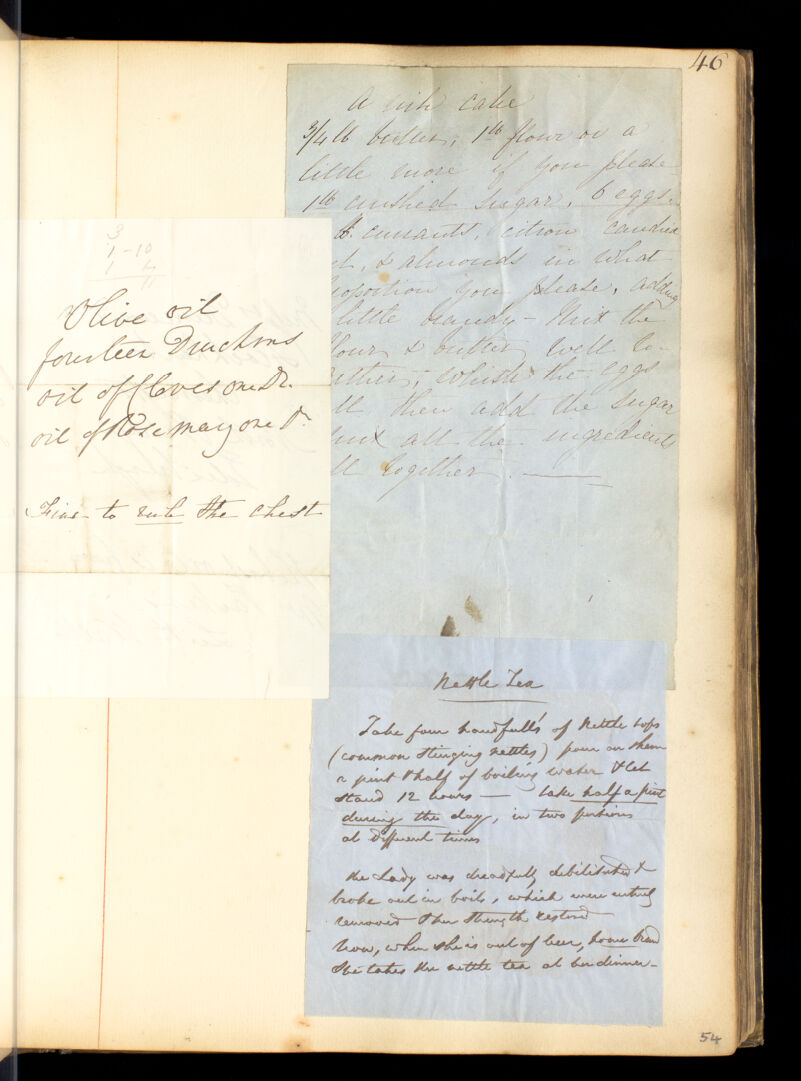 46
A rich cake
3/4 lb butter, 1lb flour or a
little more if you please
1lb crushed sugar, 6 eggs,
lb. currants, citron candied
& almonds in what
proportion you please, adding
little brandy – Mix the
flour & butter well to-
gether, whisk the eggs
then add the sugar
mix all the ingredients
together. —
3
1 – 10
1 4
11
Olive oil
fourteen Drachms
oil of Cloves one Dr.
oil of Rosemary one Dr
Fine to rub the Chest
Nettle Tea
Take four handfull's of Nettle tops
(common stinging nettles) pour on them
a pint & half of boiling water & let
stand 12 hours — take half a pint
during the day, in two portions
at different times
The Lady was dreadfully debilitated &
broke out in boils, which were entirely
removed & her strength restored
Now, when she is out of beer, home brewd
She takes the nettle tea at her dinner –
54